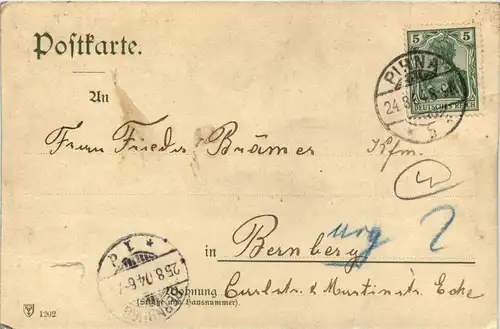 Postkarte.
5
DEUTSCHES REICH
PIRNA
24.8.04.
* b
An
Frau Frieda Brämer
Kfm.
in Bernberg
25.8.04.6-7
Wohnung
(Straße und Hausnummer)
Carlstr. & Martinstr. Ecke
1202